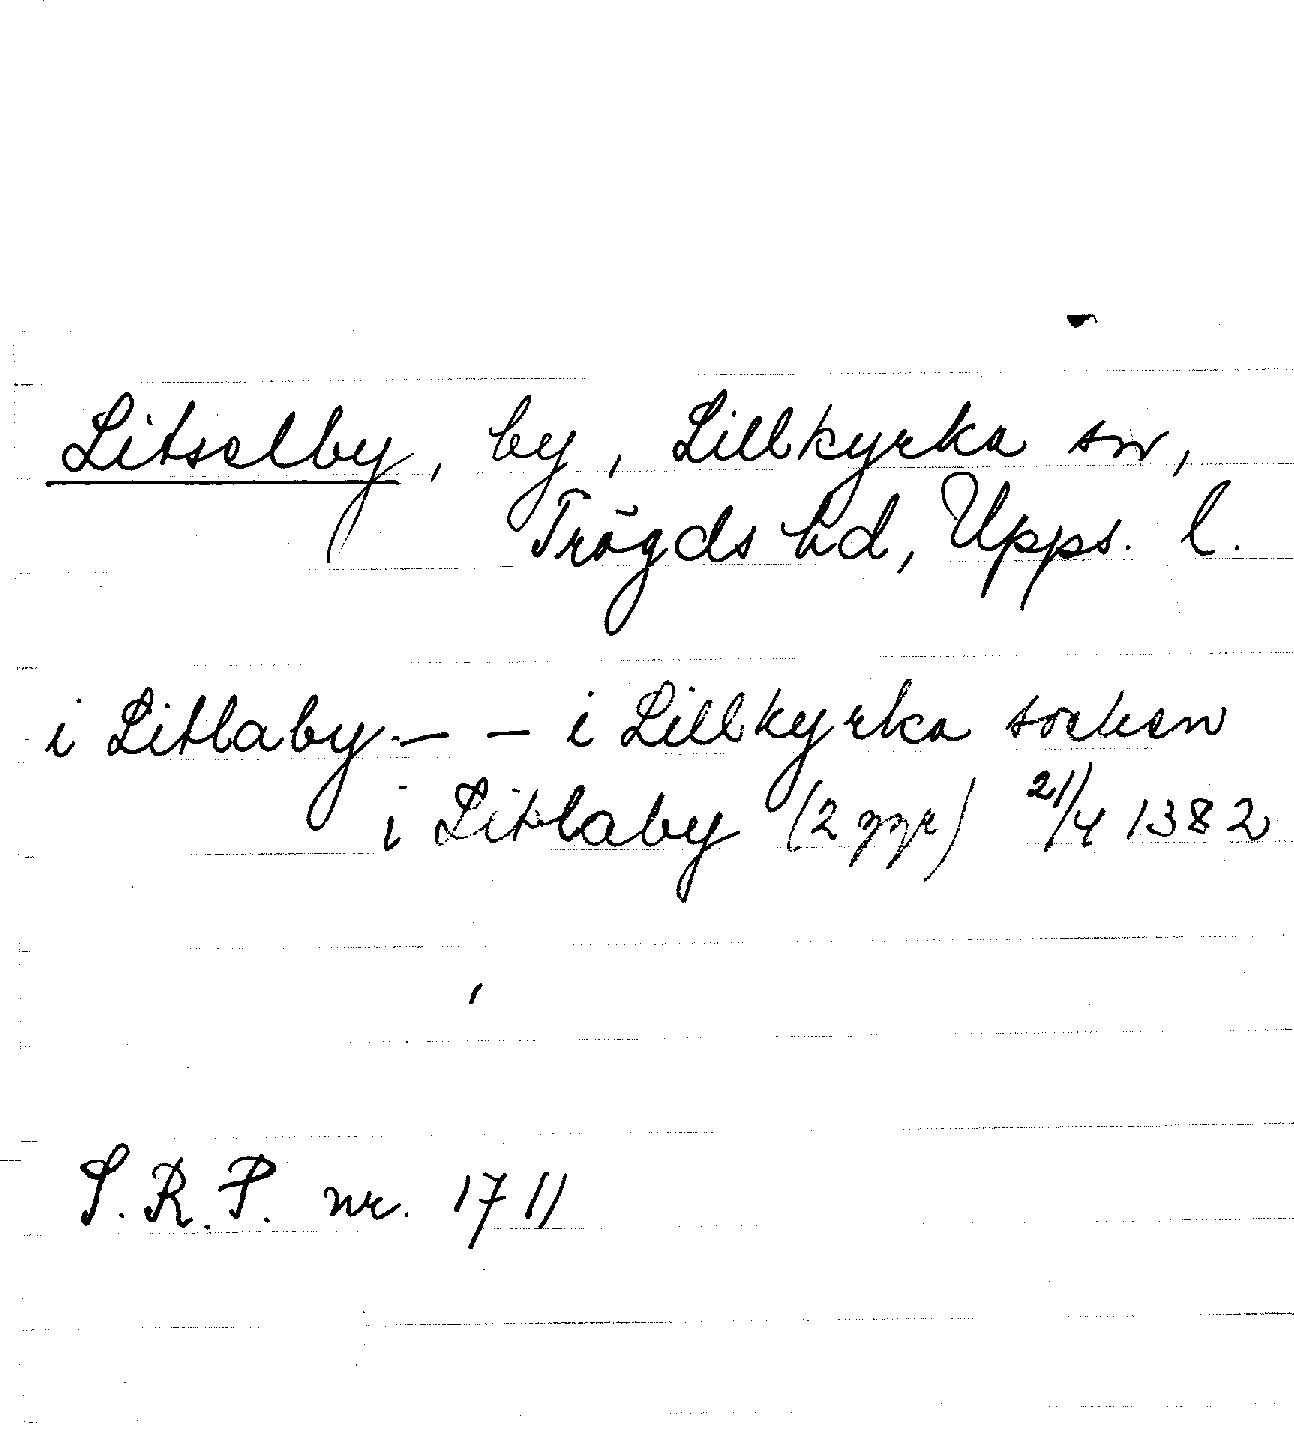 Litselby, by, Lillkyrka sn,
Trögds hd, Upps. l.
i Litlaby - - i Lillkyrka socken
i Litlaby (2 ggr) 21/4 1382
S.R.P. nr. 1711